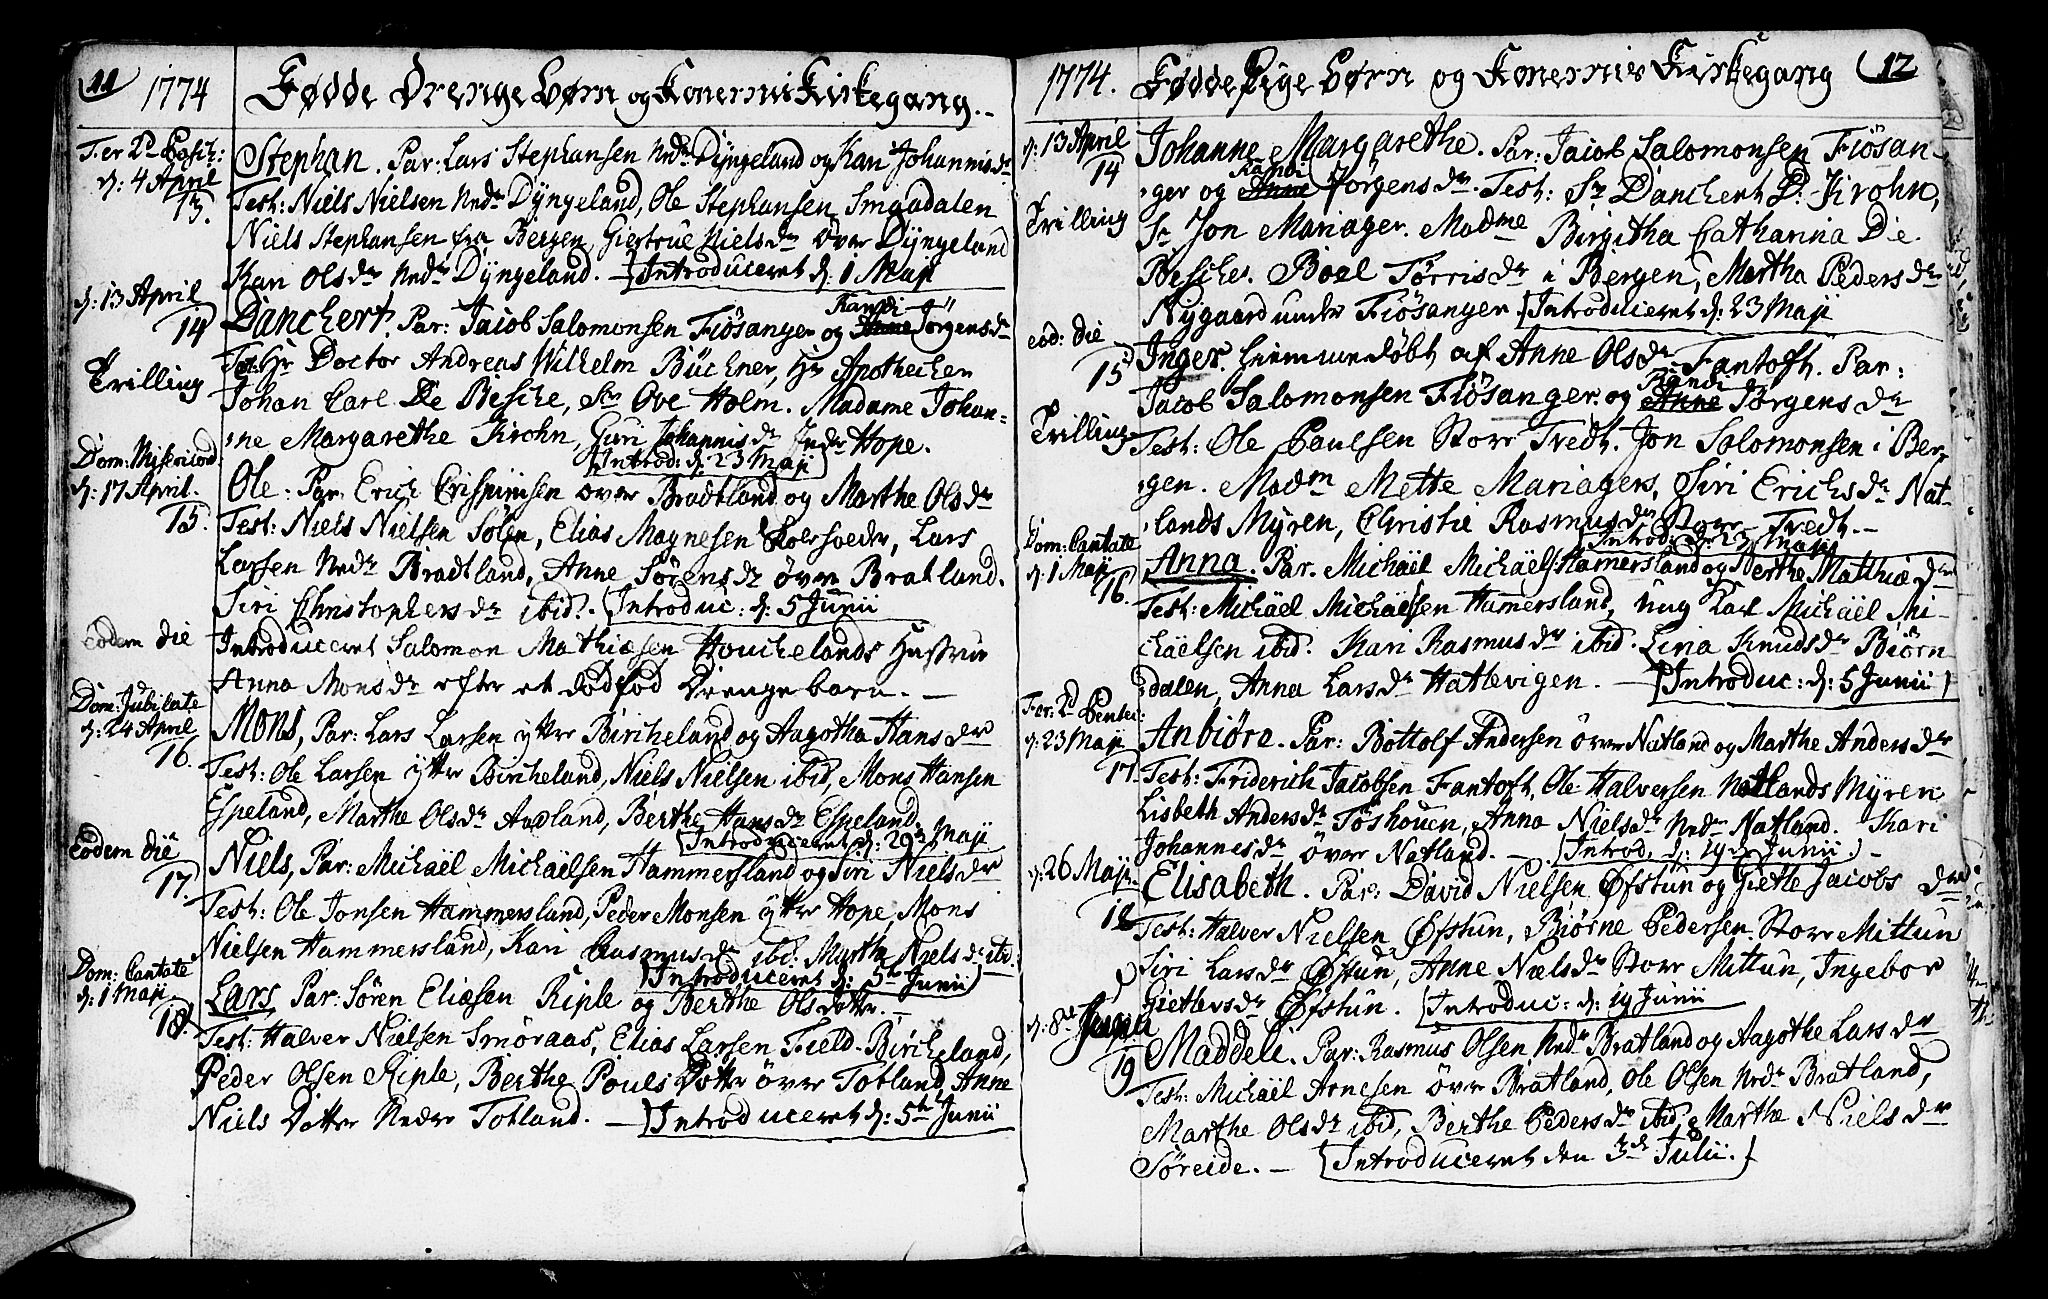 11
1774
Fødde Drenge Børn og Konernis Kirkegang.
Fer 2d Pasch:
d: 4 April
13.
Stephan. Par: Lars Stephansen Nedr Dÿngeland og Kari Johannis dr
Test: Niels Nielsen Nedr Dÿngeland, Ole Stephansen Smaadalen
Niels Stephansen fra Bergen, Giertrue Niels dr över Dÿngeland
Kari Ols dr Nedr Dÿngeland. Introduceret d: 1 Maji
d: 13 April
14
Trilling
Danckert. Par: Jacob Salomonsen Fiösanger og Randi Jörgens dr
Test: Hr Doctor Andreas Wilhelm Büchner, Hr Apothecher
Johan Carl De Besche, Sr Ove Holm. Madame Johan-
ne Margarethe Krohn, Guri Johannis dr Indr Hope.
Introd: d: 23 Maji
Dom: Misericord
d: 17 April.
15.
Ole. Par. Erich Crispinsen över Bradtland og Marthe Ols dr
Test: Niels Nielsen Sölen, Elias Magnesen, Lars
Larsen Nedr Bradtland, Anne Sörens dr över Bratland.
Siri Christophers dr ibid. Introduc: d: 5 Junii
eodem die
Introduceret Salomon Mathiesen Houchelands Hustrue
Anna Mons dr efter et dödfod Drengebarn.
Dom: Jubilate
d: 24 April
16.
Mons, Par: Lars Larsen ytter Bircheland og Aagotha Hans dr
Test: Ole Larsen ytter Bircheland, Niels Nielsen ibid, Mons Hansen
Espeland, Marthe Ols dr Aadland, Berthe Hans dr Espeland.
Introduceret d: 29 Maji
eodem die
17.
Niels, Par: Michaël Michaëlsen Hammersland og Siri Niels dr
Test: Ole Jonsen Hammersland, Peder Monsen ytter Hope, Mons
Nielsen Hammersland, Kari Rasmus dr ibid. Martha Niels dr ibd.
Introduceret d: 5te Junii
Dom: Cantate
d: 1 Maji
18.
Lars, Par: Sören Eliæsen Riple og Berthe Ols Dotter.
Test: Halver Nielsen Smöraas, Elias Larsen Field-Bircheland,
Peder Olsen Riple, Berthe Pouls Dotter över Totland, Anne
Niels Dotter Nedre Totland. Introduceret d: 5te Junii
12
1774.
Fødde Pige Børn og Konernis Kirkegang
d: 13 April
14
Trilling
Johanne Margarethe. Par: Jacob Salomonsen Fiösan-
ger og Randi Jörgens dr. Test: Sr Danchert D. Krohn,
Sr Jon Mariager. Madme Birgitha Catharina De
Besche. Boel Törris dr i Bergen, Martha Peders dr
Nygaard under Fiösanger. Introduceret d: 23 Maji
eod: die
15
Trilling
Inger. hiemmedöbt af Anne Ols dr Fantoft. Par:
Jacob Salomonsen Fiösanger og Randi Jörgens dr
Test: Ole Paulsen Store Tvedt. Jon Salomonsen i Ber-
gen. Madm Mette Mariagers, Siri Erichs dr Nat-
lands Myren, Christie Rasmus dr Store Tvedt.
Introd: d: 23 Maji
Dom: Cantate
d: 1 Maji
16.
Anna. Par. Michaël Michaëls Hamersland og Berthe Matthiæ dr
Test: Michäel Michäelsen Hamersland, ung Karl Michäel Mi-
chäelsen ibid. Kari Rasmus dr ibid. Lina Knuds dr Biörn
dalen, Anna Lars dr Hatlevigen. Introduc: d: 5 Junii
Fer: 2d Pentec:
d: 23 Maji
17.
Anbiöre. Par: Bottolf Andersen över Natland og Marthe Anders dr
Test: Friderich Jacobsen Fantoft, Ole Halversen Natlands Myren
Lisbeth Anders dr Töshouen, Anna Niels dr Nedr Natland. Kari
Johannes dr över Natland. Introd. d: 19 Junii
d: 26 Maji
18
Elisabeth. Par: David Nielsen Øfstun og Giethe Jacobs dr
Test: Halver Nielsen Øfstun, Biørne Pedersen Store Mittun
Siri Lars dr Øfstun, Anne Niels dr Store Mittun, Ingebor
Gietlevs dr Øfstun. Introduc: d: 19 Junii
d: 8de
19
Maddeli. Par: Rasmus Olsen Nedr Bratland og Aagothe Lars dr
Test: Michäel Arnesen över Bratland, Ole Olsen Nedr Bratland,
Marthe Ols dr ibid, Berthe Peders dr ibid, Marthe Niels dr
Söreide. Introduceret den 3de Julii.